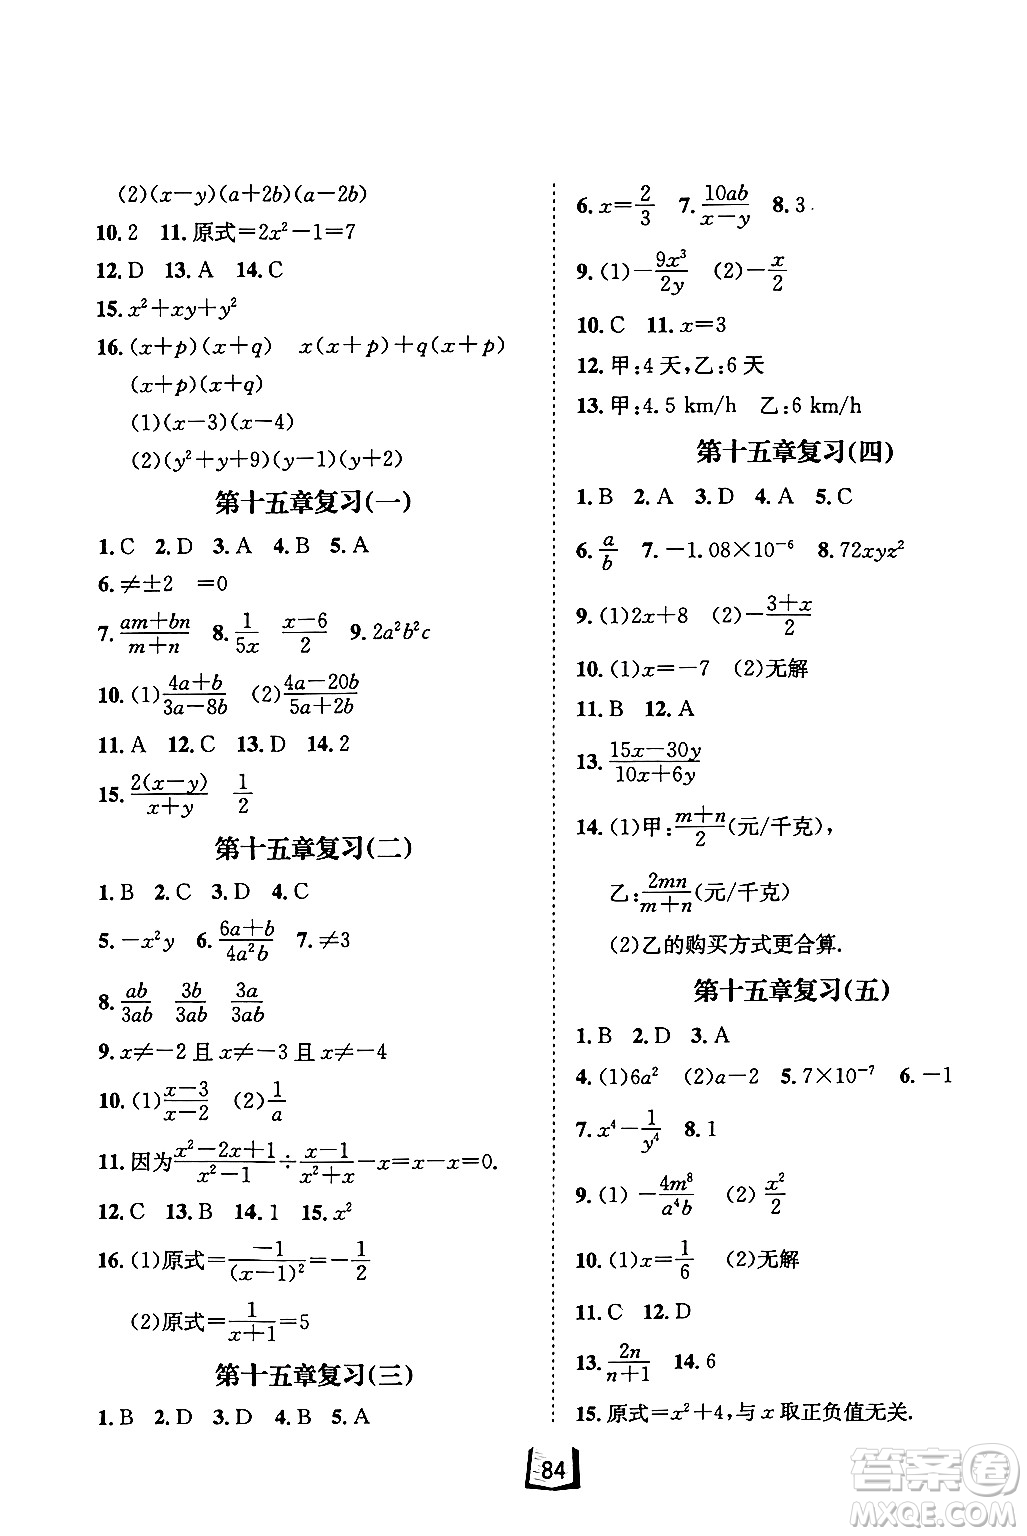 (2)(x−y)(a+2b)(a−2b)
10. 2 11. 原式=2x²−1=7
12. D 13. A 14. C
15. x²+xy+y²
16. (x+p)(x+q) x(x+p)+q(x+p)
(x+p)(x+q)
(1)(x−3)(x−4)
(2)(y²+y+9)(y−1)(y+2)
第十五章复习(一)
1. C 2. D 3. A 4. B 5. A
6. ≠±2 =0
7. (am+bn)/(m+n) 8. 1/(5x) (x−6)/2 9. 2a²b²c
10. (1)(4a+b)/(3a−8b) (2)(4a−20b)/(5a+2b)
11. A 12. C 13. D 14. 2
15. 2(x−y)/(x+y) 1/2
第十五章复习(二)
1. B 2. C 3. D 4. C
5. −x²y 6. (6a+b)/(4a²b) 7. ≠3
8. ab/(3ab) 3b/(3ab) 3a/(3ab)
9. x≠−2且x≠−3且x≠−4
10. (1)(x−3)/(x−2) (2)1/a
11. 因为(x²−2x+1)/(x²−1)÷(x−1)/(x²+x)−x=x−x=0.
12. C 13. B 14. 1 15. x²
16. (1)原式=−1/(x−1)²=−1/2
(2)原式=1/(x+1)=5
第十五章复习(三)
1. B 2. D 3. D 4. B 5. A
6. x=2/3 7. 10ab/(x−y) 8. 3
9. (1)−9x³/(2y) (2)−x/2
10. C 11. x=3
12. 甲:4天,乙:6天
13. 甲:4.5 km/h 乙:6 km/h
第十五章复习(四)
1. B 2. A 3. D 4. A 5. C
6. a/b 7. −1.08×10⁻⁶ 8. 72xyz²
9. (1)2x+8 (2)−(3+x)/2
10. (1)x=−7 (2)无解
11. B 12. A
13. (15x−30y)/(10x+6y)
14. (1)甲:(m+n)/2(元/千克),
乙:2mn/(m+n)(元/千克)
(2)乙的购买方式更合算.
第十五章复习(五)
1. B 2. D 3. A
4. (1)6a² (2)a−2 5. 7×10⁻⁷ 6. −1
7. x⁴−1/y⁴ 8. 1
9. (1)−4m⁸/(a⁴b) (2)x²/2
10. (1)x=1/6 (2)无解
11. C 12. D
13. 2n/(n+1) 14. 6
15. 原式=x²+4,与x取正负值无关.
84
答案圈
MXQE.COM